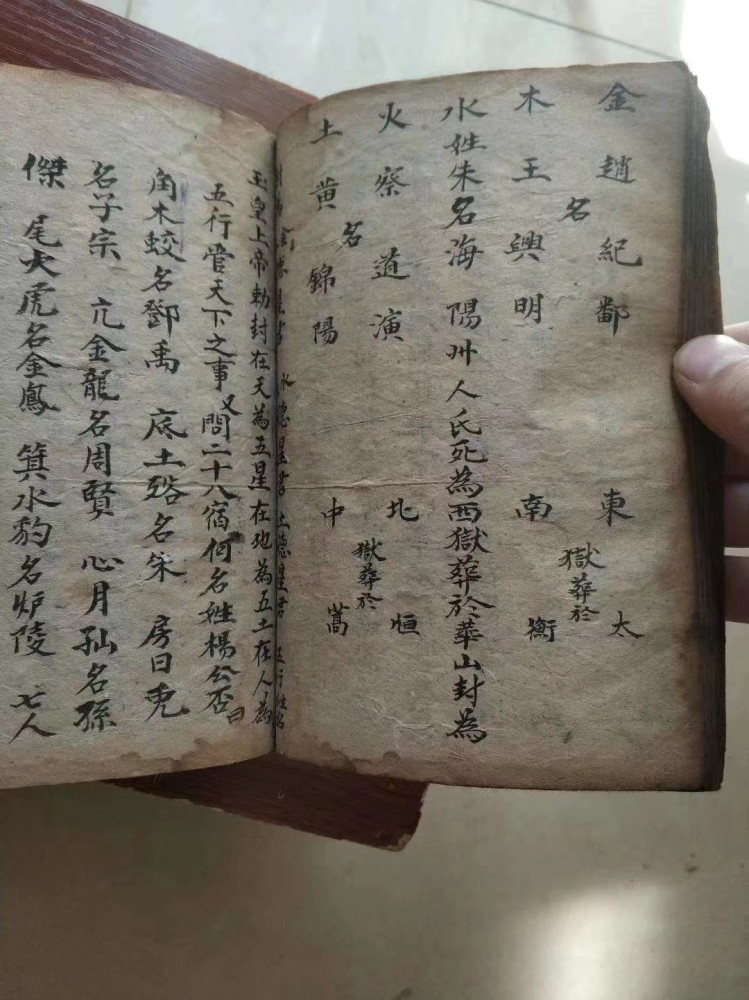 金趙紀鄱 東 太
名 獄葬於
木王興明 南 衡
水姓朱名海陽州人氏死為西獄葬於華山封為
火察道演 北 恒
名 獄葬於
土黃錦陽 中 嵩
水德星君 土德星君 五行姓名
玉皇上帝勅封在天為五星在地為五土在人為
五行管天下之事又問二十八宿何名姓楊公否曰
角木蛟名鄧禹 底土貉名朱 房日兔
名子宗 亢金龍名周賢 心月狐名孫
傑 尾火虎名金鳳 箕水豹名炉陵 七人